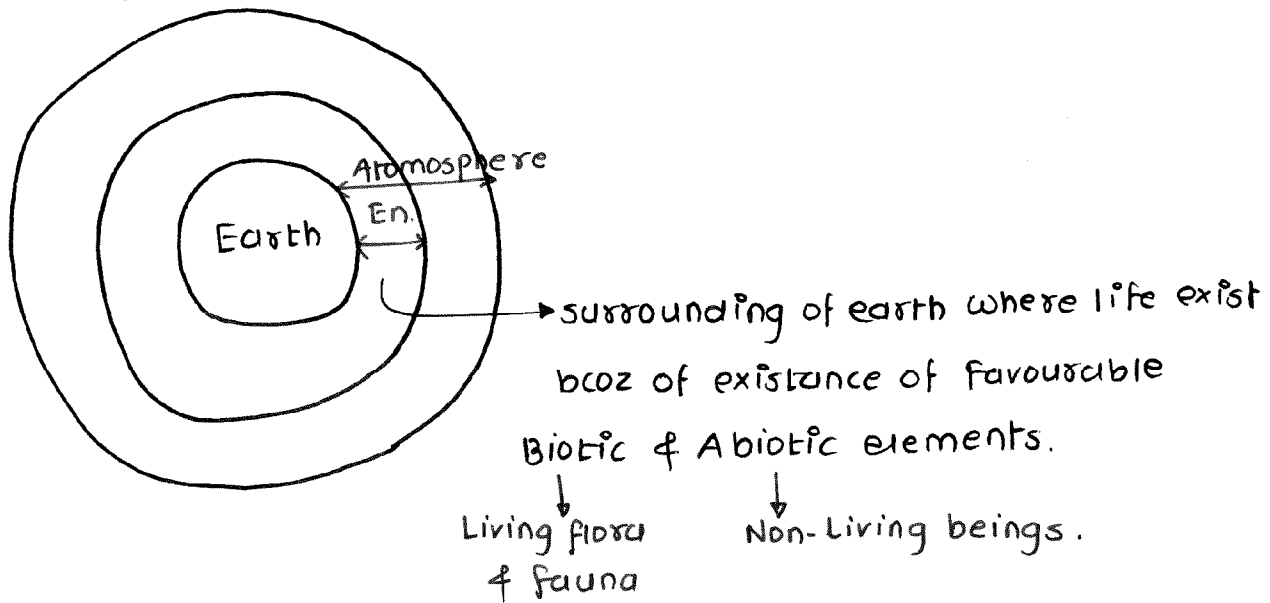 Atomosphere
En.
Earth
surrounding of earth where life exist
bcoz of existance of favourable
Biotic & Abiotic elements.
Living flora
& fauna
Non-Living beings.